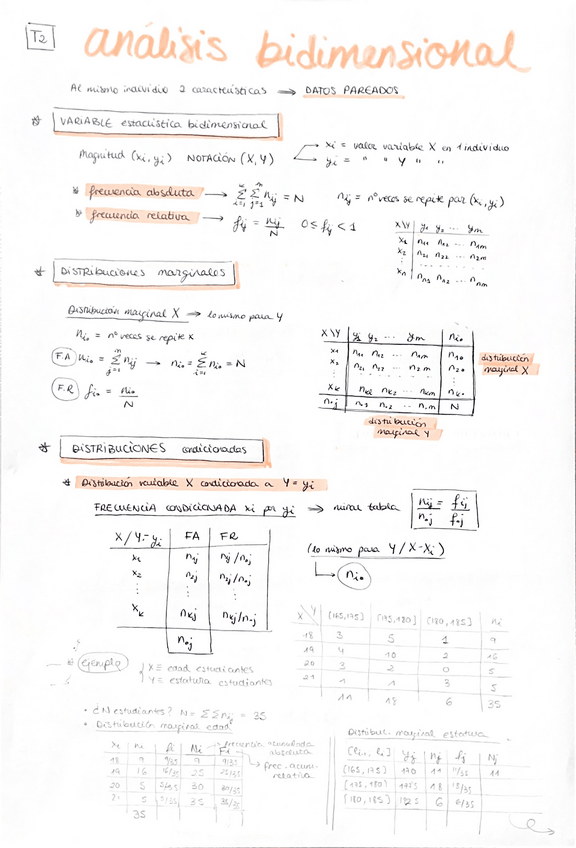 T2
análisis bidimensional
Al mismo individuo 2 características → DATOS PAREADOS
* VARIABLE estadística bidimensional
Magnitud (xi, yi) NOTACIÓN (X, Y)
xi = valor variable X en 1 individuo
yi = " " Y " "
* frecuencia absoluta → Σ Σ nij = N nij = nº veces se repite par (xi, yi)
* frecuencia relativa → fij = nij/N 0 ≤ fij < 1
X\Y y1 y2 ... ym
x1 n11 n12 ... n1m
x2 n21 n22 ... n2m
* DISTRIBUCIONES marginales
Distribución marginal X → lo mismo para Y
ni• = nº veces se repite x
F.A ni• = Σ nij → ni• = Σ ni• = N
F.R fi• = ni•/N
X\Y y1 y2 ... ym ni•
x1 n11 n12 ... n1m n1•
x2 n21 n22 ... n2m n2•
xk nk1 nk2 ... nkm nk•
n•j n•1 n•2 ... n•m N
distribución
marginal X
distribución
marginal Y
* DISTRIBUCIONES condicionadas
* Distribución variable X condicionada a Y = yi
FRECUENCIA CONDICIONADA xi por yi → mirar tabla nij/n•j = fij/f•j
X/Y=yj FA FR
x1 n1j n1j/n•j
x2 n2j n2j/n•j
xk nkj nkj/n•j
n•j
(lo mismo para Y/X=Xi)
ni•
X\Y (165,175] (175,180] (180,185] ni
18 3 5 1 9
19 4 10 2 16
20 3 2 0 5
21 1 1 3 5
11 18 6 35
* ejemplo
X ≡ edad estudiantes
Y ≡ estatura estudiantes
• ¿N estudiantes? N = ΣΣnij = 35
• Distribución marginal edad
xi ni fi Ni Fi
frecuencia acumulada
absoluta
frec. acum.
relativa
18 9 9/35 9 9/35
19 16 16/35 25 25/35
20 5 5/35 30 30/35
21 5 5/35 35 35/35
35
Distribuc. marginal estatura
yj nj fj Nj
(165,175] 170 11 11/35 11
(175,180] 177'5 18 18/35
(180,185] 182'5 6 6/35